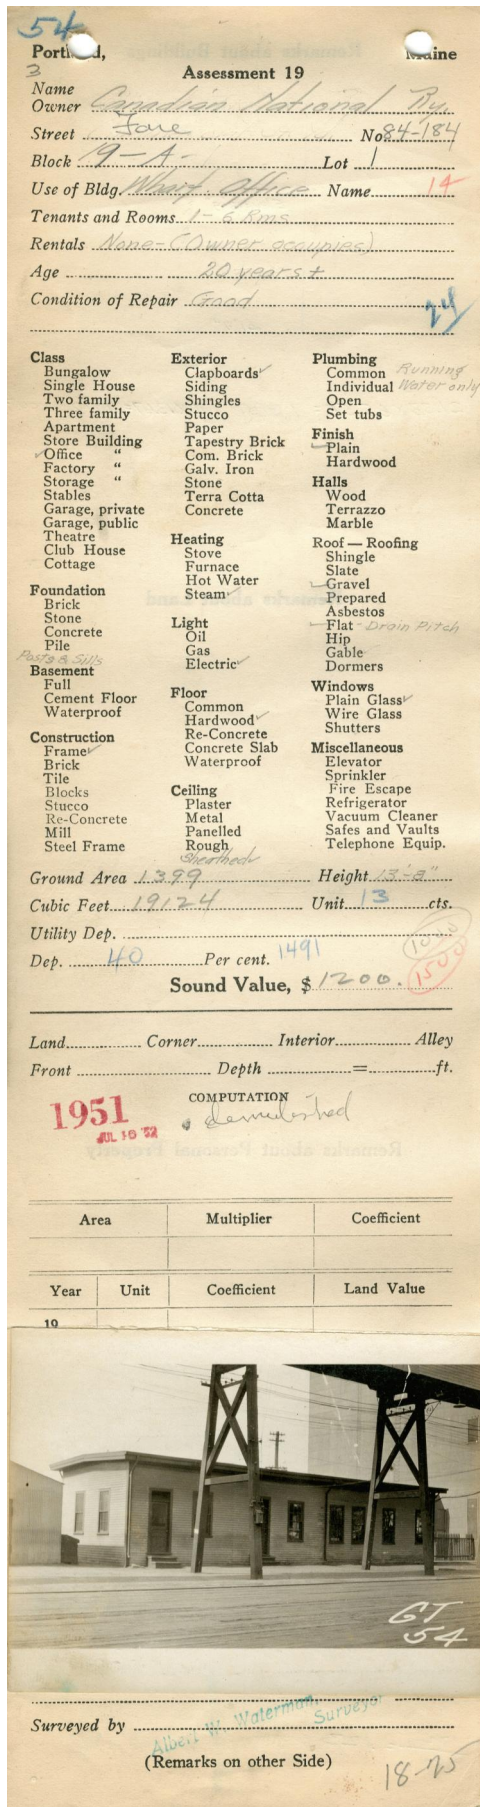 54
Portland, Maine
3
Assessment 19
Name
Owner Canadian National Ry.
Street Fore No 84-184
Block 19-A- Lot 1
Use of Bldg Wharf Office Name 14
Tenants and Rooms 1-6 Rms
Rentals None-(Owner occupies)
Age 20 years +
Condition of Repair Good
24
Class
Bungalow
Single House
Two family
Three family
Apartment
Store Building
✓Office "
Factory "
Storage "
Stables
Garage, private
Garage, public
Theatre
Club House
Cottage
Foundation
Brick
Stone
Concrete
Pile
Posts & Sills
Basement
Full
Cement Floor
Waterproof
Construction
Frame✓
Brick
Tile
Blocks
Stucco
Re-Concrete
Mill
Steel Frame
Exterior
Clapboards✓
Siding
Shingles
Stucco
Paper
Tapestry Brick
Com. Brick
Galv. Iron
Stone
Terra Cotta
Concrete
Heating
Stove
Furnace
Hot Water
Steam✓
Light
Oil
Gas
Electric✓
Floor
Common
Hardwood✓
Re-Concrete
Concrete Slab
Waterproof
Ceiling
Plaster
Metal
Panelled
Rough
Sheathed✓
Plumbing
Common Running
Individual Water only
Open
Set tubs
Finish
✓Plain
Hardwood
Halls
Wood
Terrazzo
Marble
Roof — Roofing
Shingle
Slate
✓Gravel
Prepared
Asbestos
✓Flat - Drain Pitch
Hip
Gable
Dormers
Windows
Plain Glass✓
Wire Glass
Shutters
Miscellaneous
Elevator
Sprinkler
Fire Escape
Refrigerator
Vacuum Cleaner
Safes and Vaults
Telephone Equip.
Ground Area 1399 Height 13'-8"
Cubic Feet 19124 Unit 13 cts.
Utility Dep. 1000
Dep. 40 Per cent. 1491 1500
Sound Value, $ 1200.
Land Corner Interior Alley
Front Depth = ft.
COMPUTATION
1951 demolished
JUL 16 '52
Area Multiplier Coefficient
Year Unit Coefficient Land Value
19
GT
54
Surveyed by Albert W. Waterman, Surveyor
(Remarks on other Side)
18-25